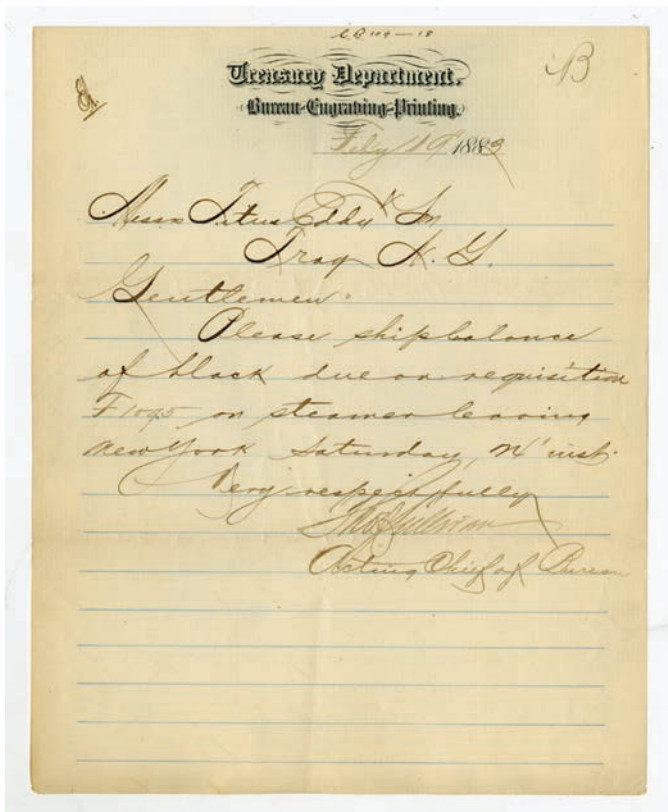 B
Treasury Department.
Bureau-Engraving-Printing.
Feby 19 1883
Messrs Titus Eddy & Son
Troy N. Y.
Gentlemen:
Please ship balance
of black due on requisition
F1095 on steamer leaving
New York Saturday, inst.
Very respectfully
Acting Chief of Bureau